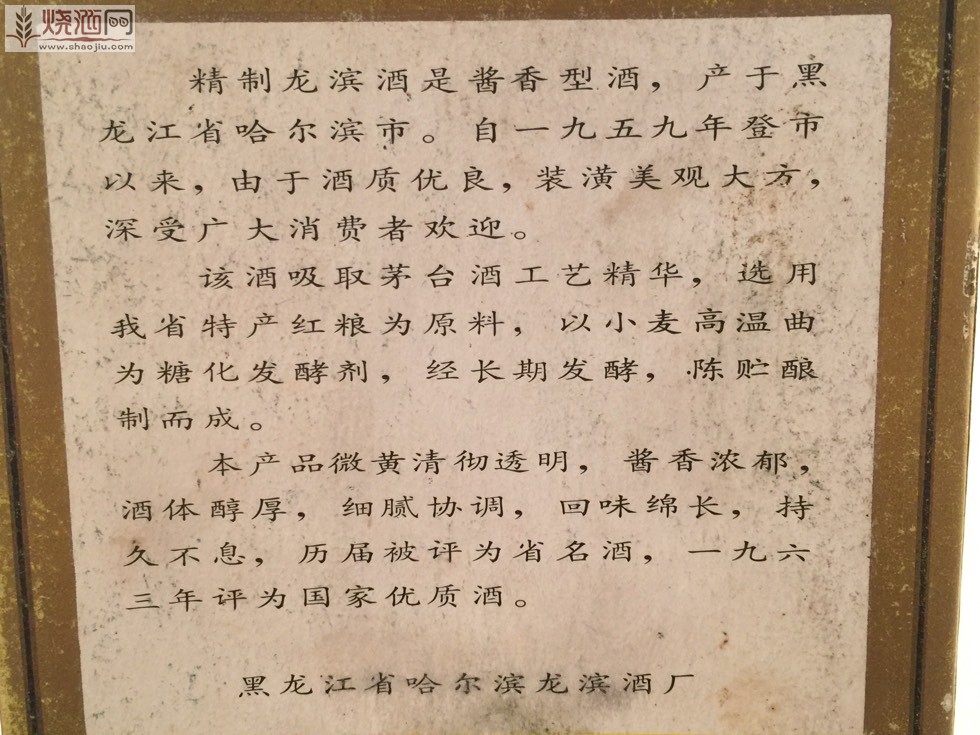 烧酒网
www.shaojiu.com
精制龙滨酒是酱香型酒，产于黑
龙江省哈尔滨市。自一九五九年登市
以来，由于酒质优良，装潢美观大方，
深受广大消费者欢迎。
该酒吸取茅台酒工艺精华，选用
我省特产红粮为原料，以小麦高温曲
为糖化发酵剂，经长期发酵，陈贮酿
制而成。
本产品微黄清彻透明，酱香浓郁，
酒体醇厚，细腻协调，回味绵长，持
久不息，历届被评为省名酒，一九六
三年评为国家优质酒。
黑龙江省哈尔滨龙滨酒厂